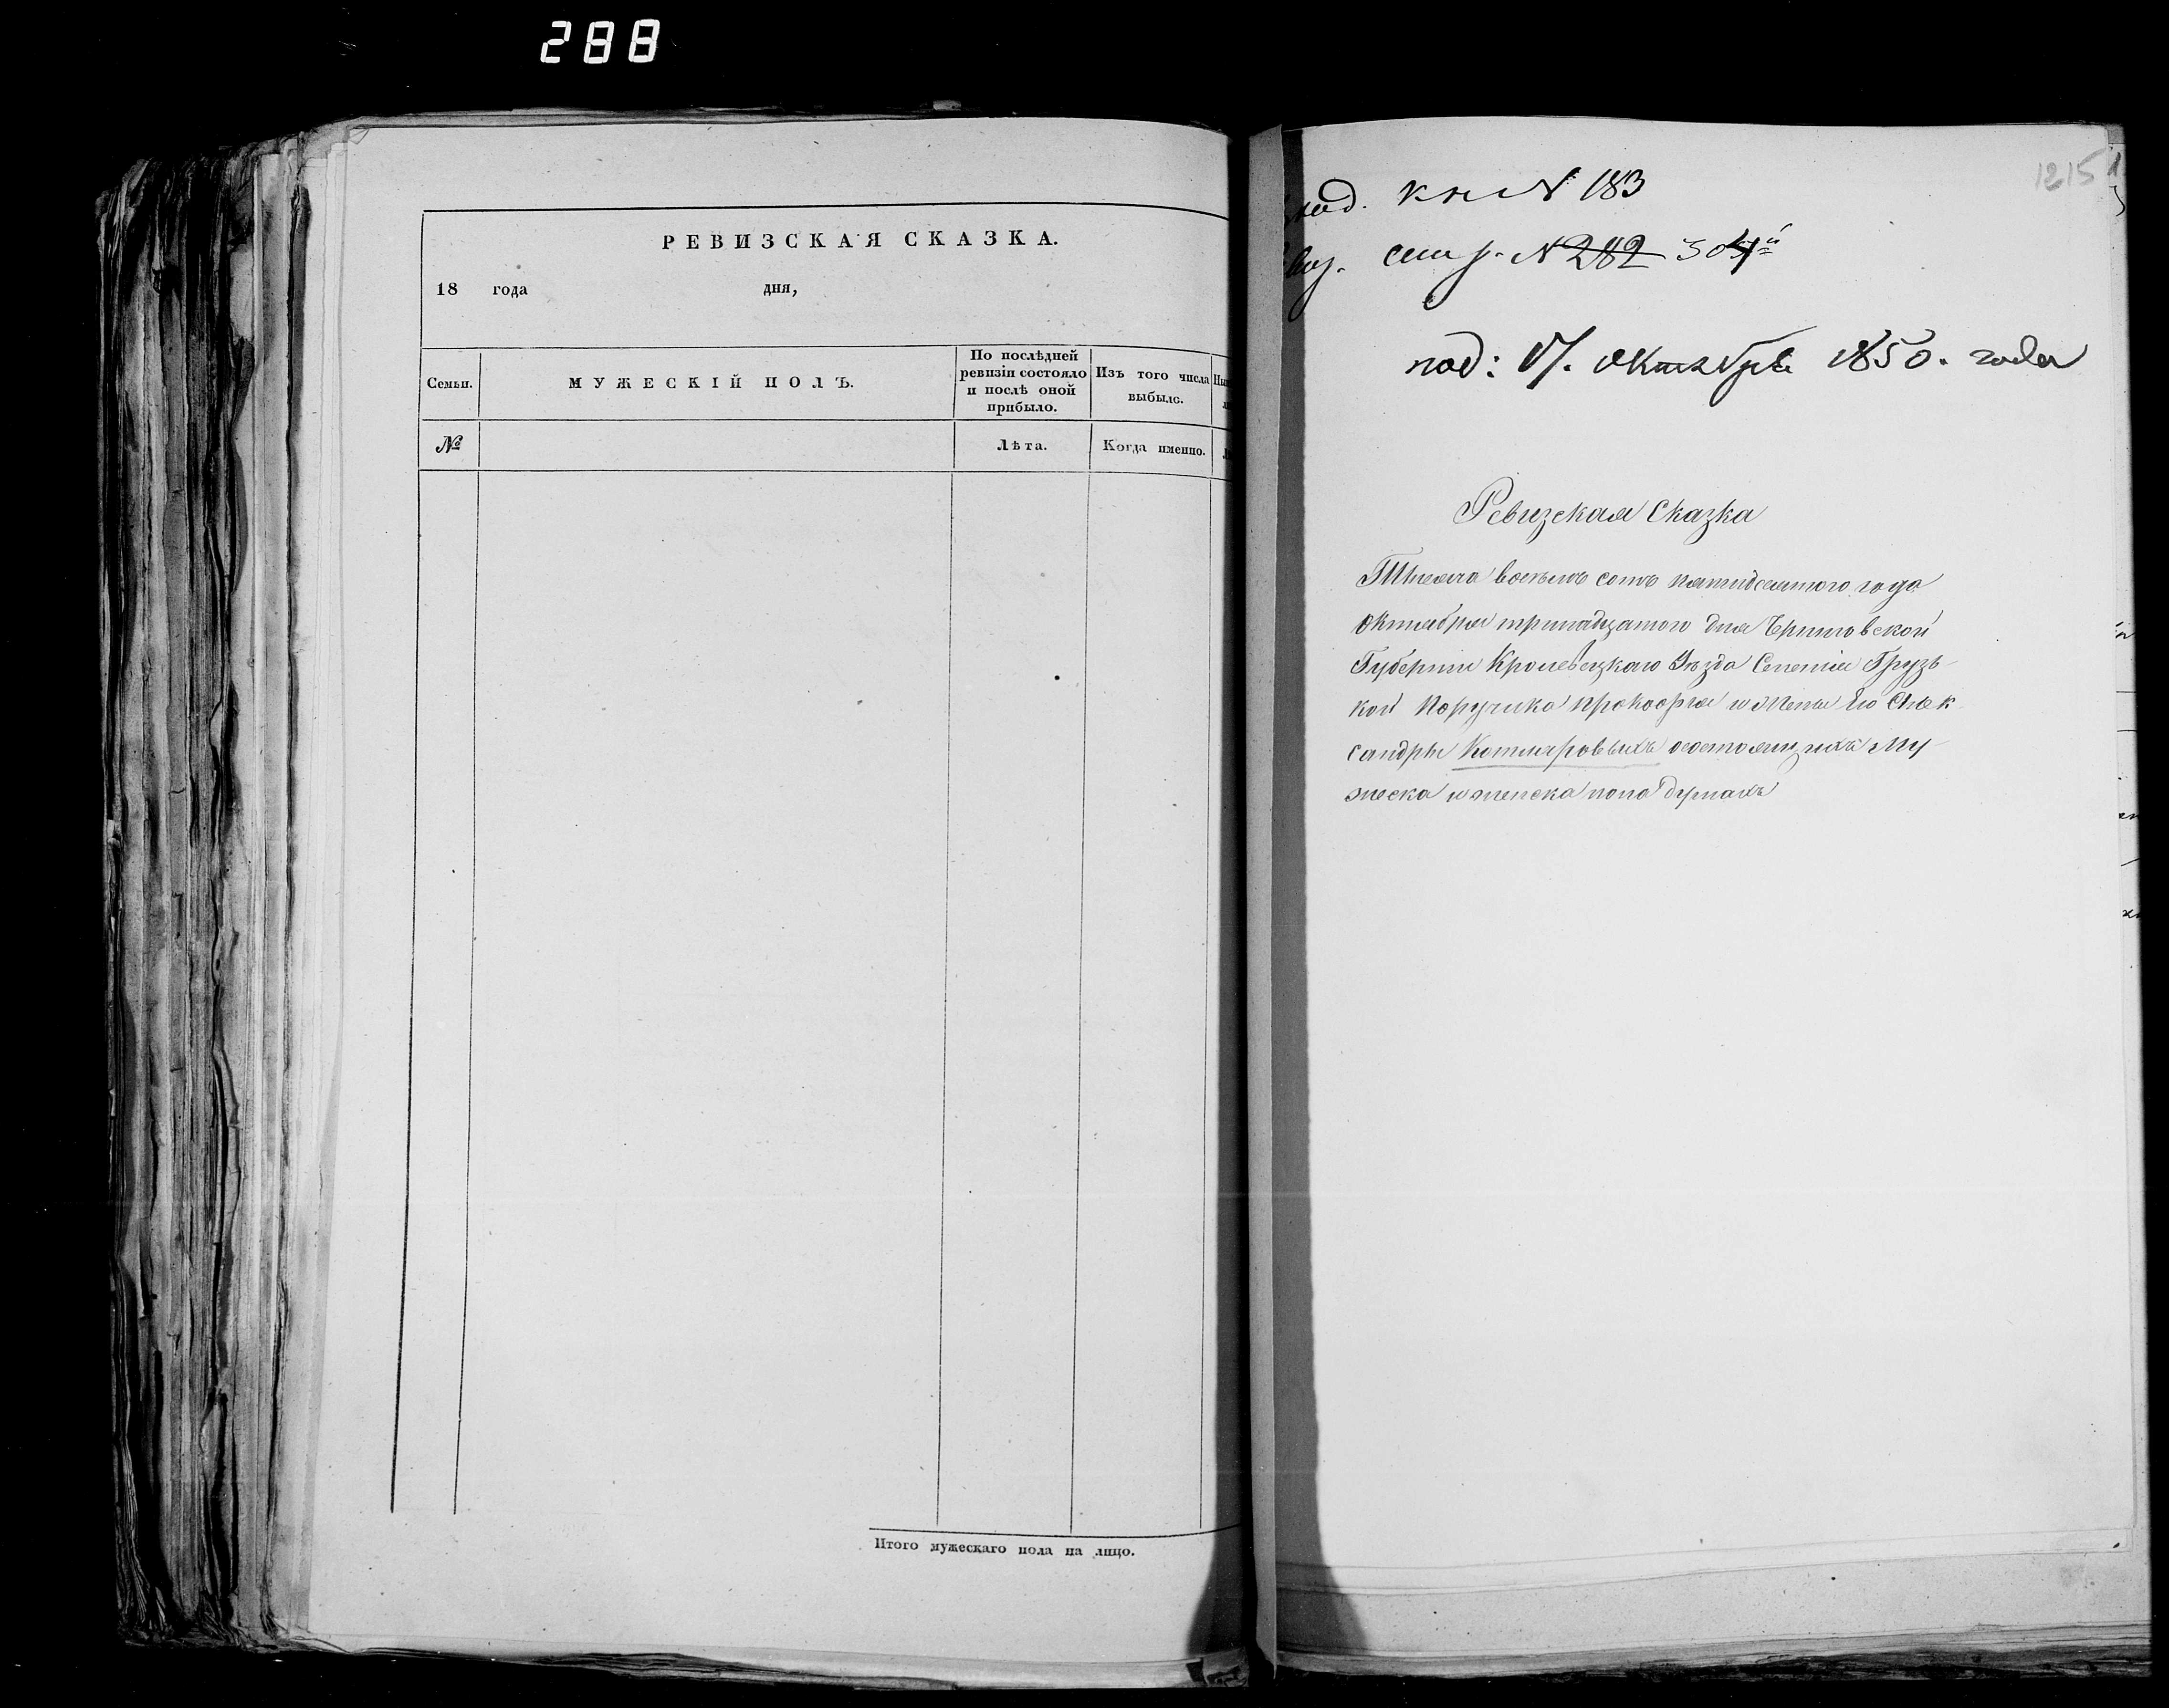 288
РЕВИЗСКАЯ СКАЗКА.
18 года дня,
Семьи.
МУЖЕСКІЙ ПОЛЪ.
По послѣдней
ревизіи состояло
и послѣ оной
прибыло.
Изъ того числа
выбыло.
№
Лѣта.
Когда именно.
Итого мужескаго пола на лицо.
1215
кн № 183
№ 282 304й
под: 17. Октября 1850. года
Ревизская Сказка
Тысяча восемь сотъ пятидесятого года
Октября тринадцатого дня Черниговской
Губерніи Кролевецкаго Уѣзда Селенія Грузь-
кой Поручика Прокофія и Жены Его Алек
сандры Котляровыхъ состоящихъ му-
жеска и женска пола душахъ